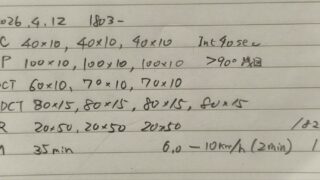 2026.4.12 1803-
C 40×10, 40×10, 40×10 Int 90sec
P 100×10, 100×10, 100×10 >90°
CT 60×10, 70×10, 70×10
DCT 80×15, 80×15, 80×15, 80×15
R 20×50, 20×50 20×50 182
35min 6.0-10km/h (2min)